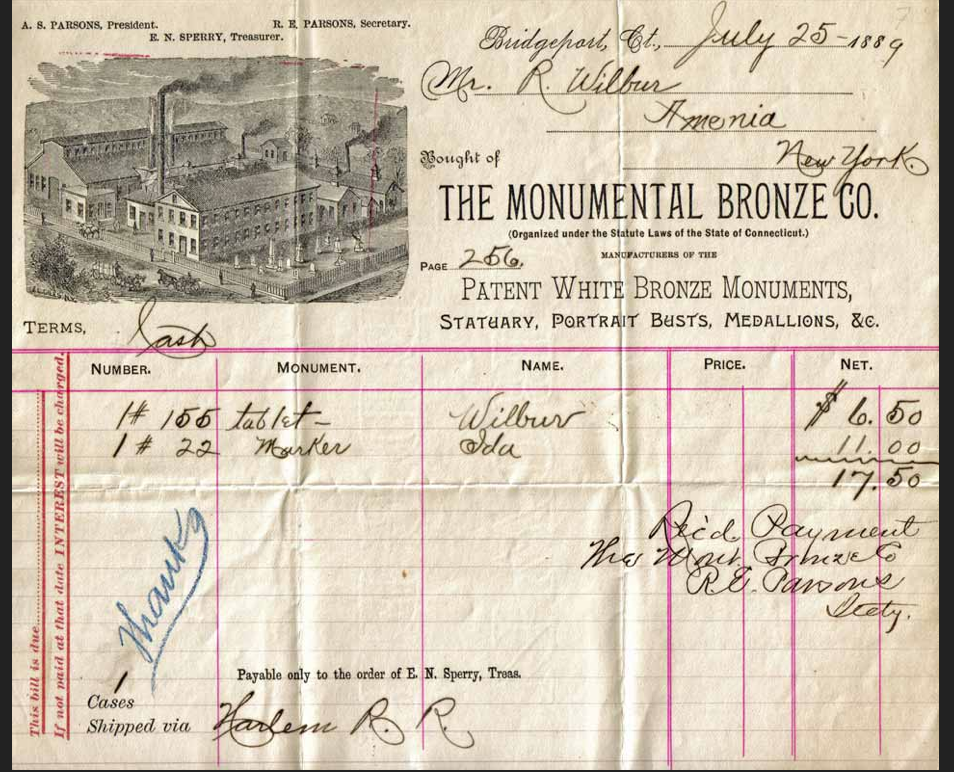 A. S. PARSONS, President.
R. E. PARSONS, Secretary.
E. N. SPERRY, Treasurer.
Bridgeport, Ct., July 25-1889
Mr. R. Wilbur
Amenia
New York.
Bought of
THE MONUMENTAL BRONZE CO.
(Organized under the Statute Laws of the State of Connecticut.)
PAGE 256.
MANUFACTURERS OF THE
PATENT WHITE BRONZE MONUMENTS,
STATUARY, PORTRAIT BUSTS, MEDALLIONS, &C.
TERMS, Cash
NUMBER. MONUMENT. NAME. PRICE. NET.
1 # 155 tablet- Wilbur $ 6.50
1 # 22 Marker Ida 11.00
17.50
Rec'd. Payment
The Mon. Bronze Co
R.E. Parsons
Secty.
This bill is due
If not paid at that date INTEREST will be charged.
Thanks
Payable only to the order of E. N. Sperry, Treas.
1
Cases
Shipped via Harlem R. R.